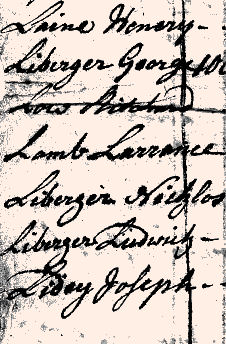 Laine Henery -
Liberger George
Low
Lamb Larrance
Liberger Nicklos
Liberger Ludwitz -
Lidey Joseph -